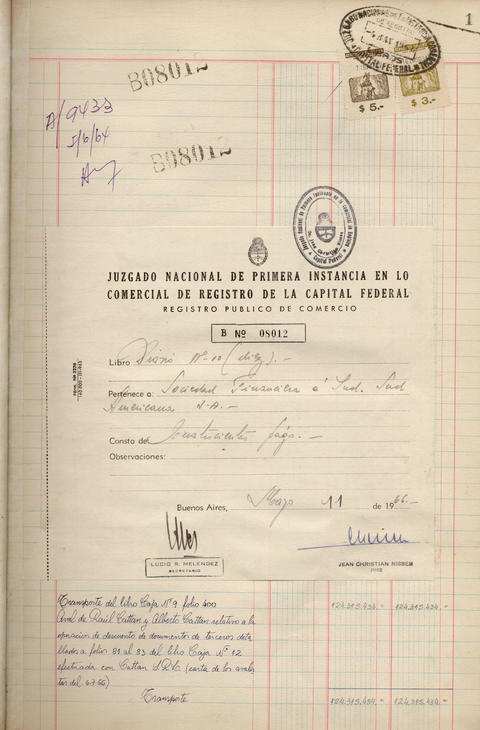 1
$ 5.-
$ 3.-
B08012
A/9433
1/6/64
B08012
JUZGADO NACIONAL DE PRIMERA INSTANCIA EN LO
COMERCIAL DE REGISTRO DE LA CAPITAL FEDERAL
REGISTRO PUBLICO DE COMERCIO
B Nº 08012
Libro Diario Nº 10 (diez).-
Pertenece a: Sociedad Financiera é Ind. Sud
Americana S.A.-
Consta de: cuatrocientas págs.-
Observaciones:
Buenos Aires, Mayo 11 de 1966.-
LUCIO R. MELENDEZ
SECRETARIO
JEAN CHRISTIAN NISSEN
JUEZ
Transporte del libro Caja Nº 9 folio 400 124.315.434.- 124.315.434.-
Aval de Raúl Cattan y Alberto Cattan relativo a la
operación de descuento de documentos de terceros deta
llados a folios 81 al 83 del libro Caja Nº 12
efectuada con Cattan S.R.L. (carta de los avalis
tas del 6.7.66)
Transporte 124.315.434.- 124.315.434.-